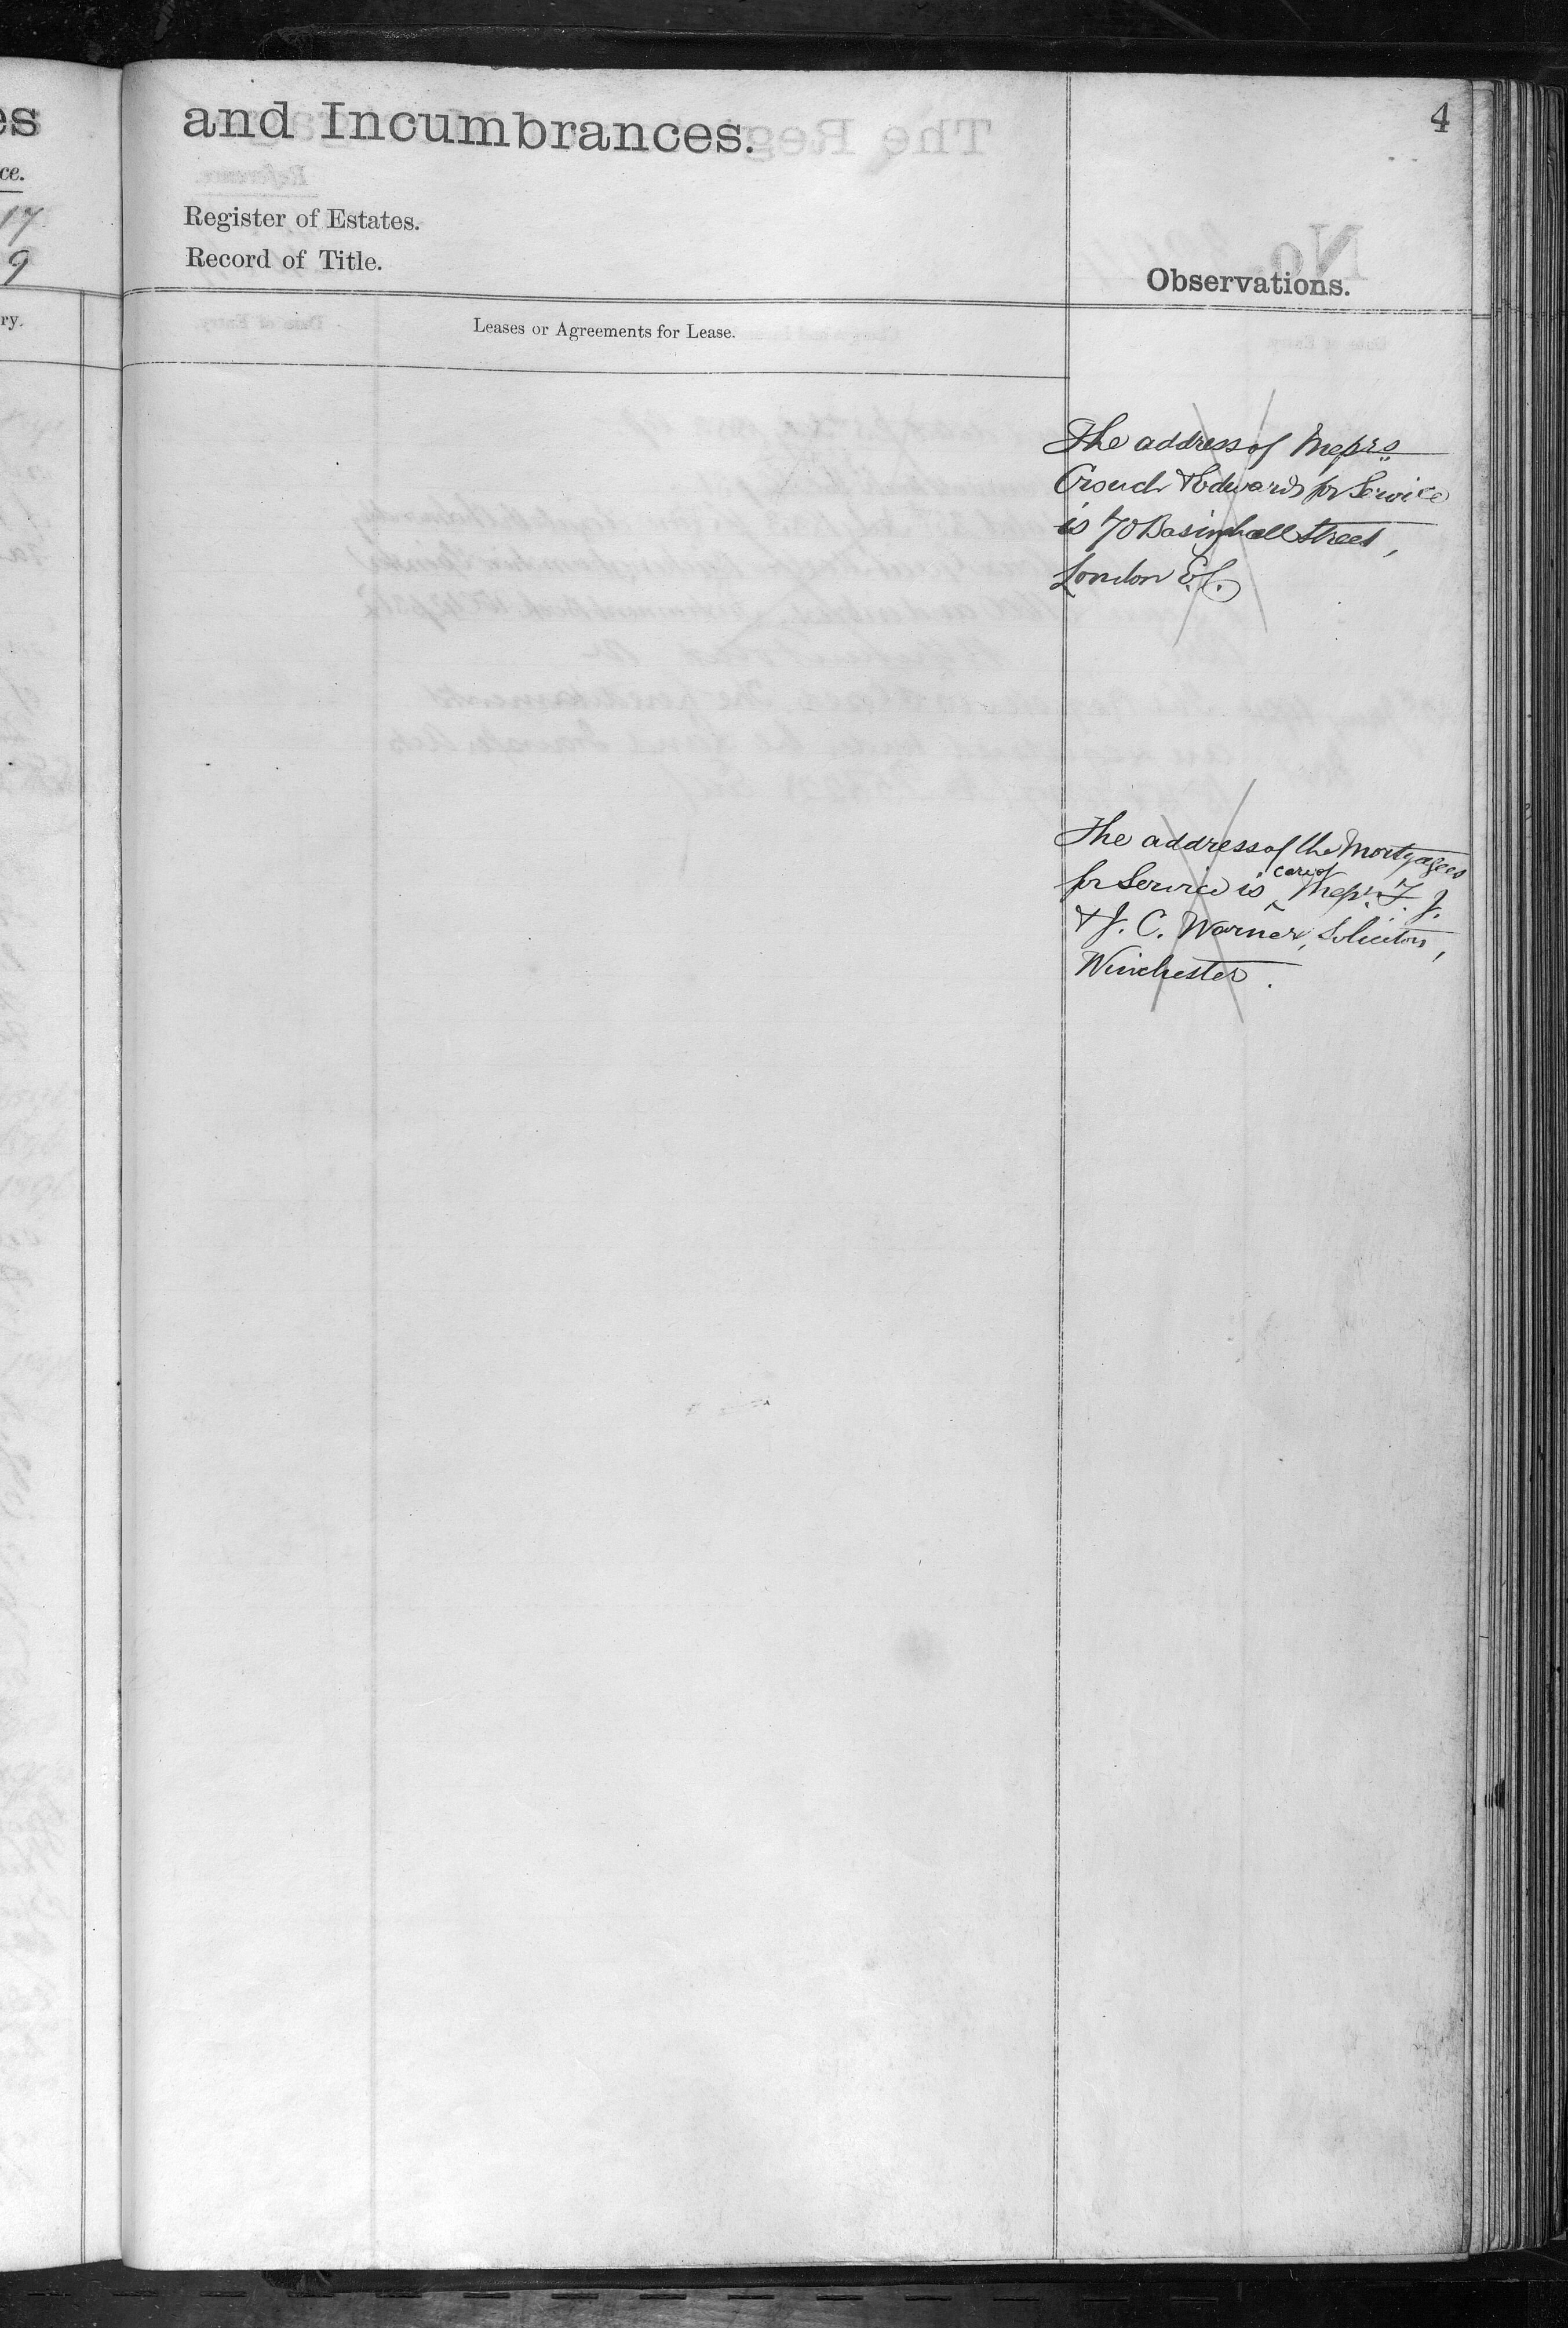 es
ce.
17
9
ry.
and Incumbrances.
4
Register of Estates.
Record of Title.
Observations.
Leases or Agreements for Lease.
The address of Messrs
Crouch & Edwards for Service
is 70 Basinghall Street,
London E.C.
The address of the Mortgagees
for Service is care of Messrs. F. J.
& J. C. Warner, Solicitors,
Winchester.